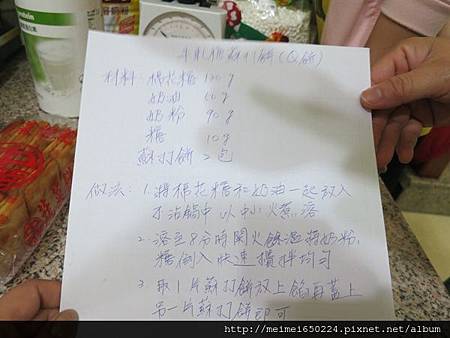 牛軋糖蘇打餅(Q餅)
材料: 棉花糖 100g
奶油 60g
奶粉 90g
糖 10g
蘇打餅 2包
做法: 1. 將棉花糖和奶油一起放入
不沾鍋中 以中小火煮溶
2. 溶至8分時關火 餘溫將奶粉,
糖倒入 快速攪拌均勻
3. 取1片蘇打餅放上餡再蓋上
另一片蘇打餅即可
http://meimei650224.pixnet.net/album